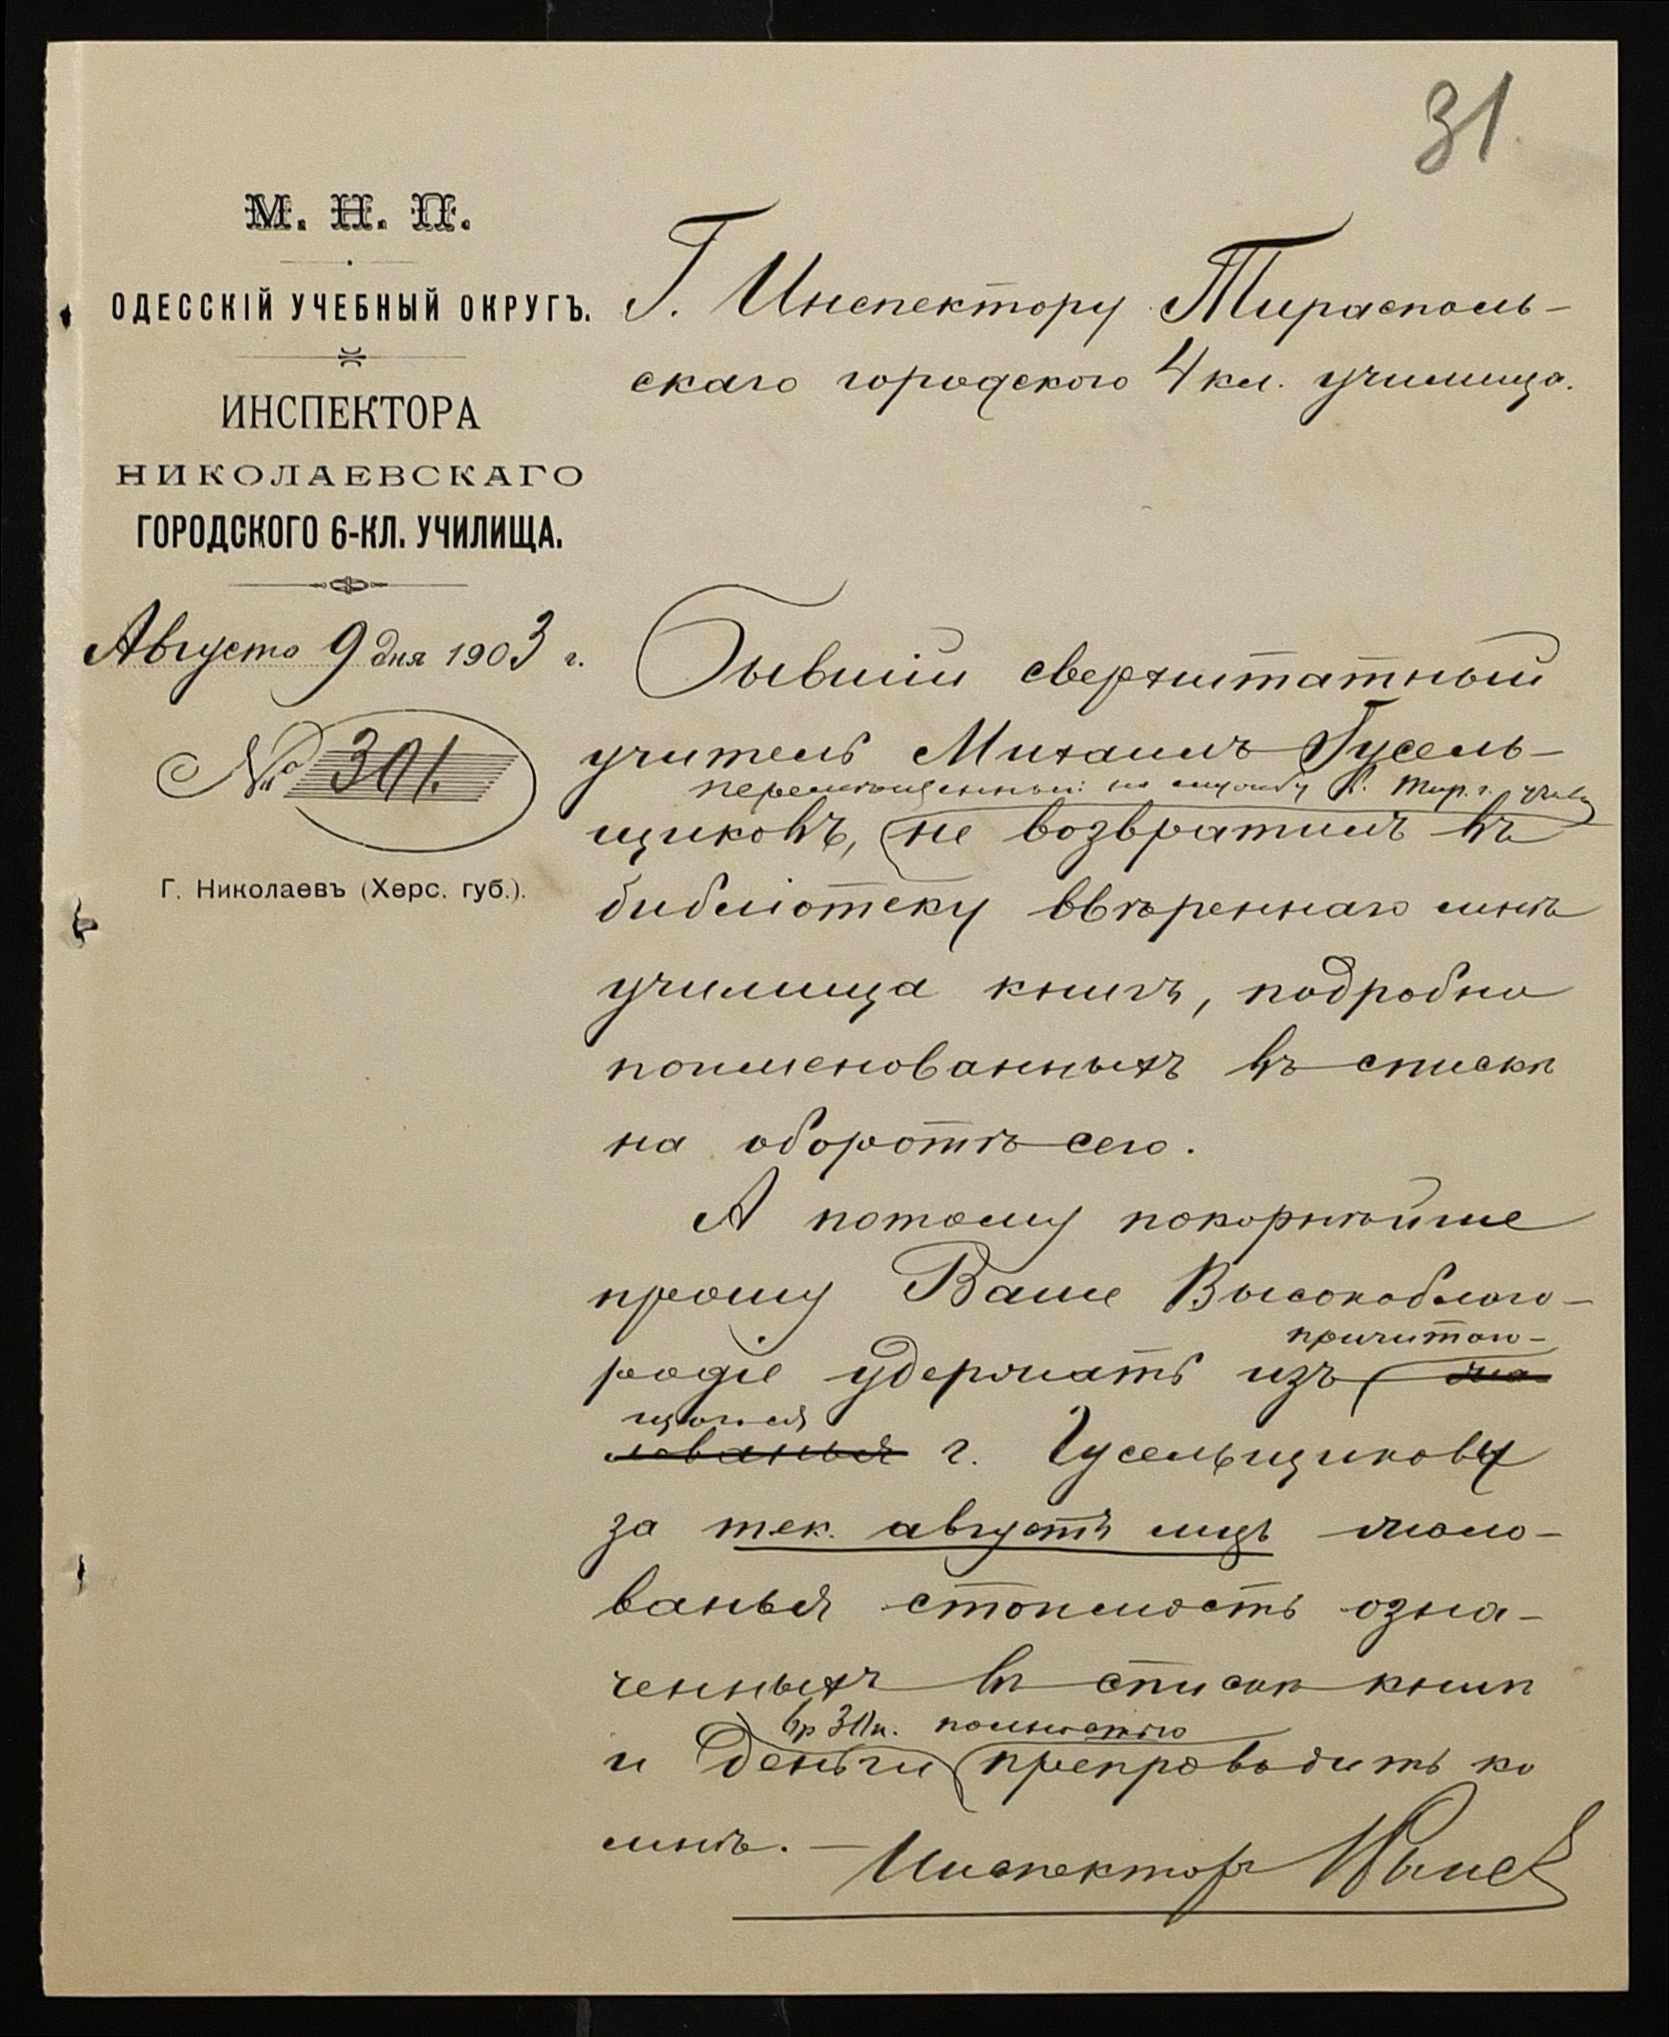 31
М. Н. П.
ОДЕССКІЙ УЧЕБНЫЙ ОКРУГЪ.
ИНСПЕКТОРА
НИКОЛАЕВСКАГО
ГОРОДСКОГО 6-КЛ. УЧИЛИЩА.
Августа 9 дня 1903 г.
№ 301.
Г. Николаевъ (Херс. губ.).
Г. Инспектору Тирасполь-
скаго городского 4 кл. училища.
Бывшій сверхштатный
учитель Михаилъ Гусель-
перемѣщенный на службу в. Тир. г. учил
щиковъ, не возвратилъ въ
библіотеку ввѣреннаго мнѣ
училища книгъ, подробно
поименованныхъ въ спискѣ
на оборотѣ сего.
А потому покорнѣйше
прошу Ваше Высокоблаго-
причитаю-
родіе удержать изъ жа-
щагося
лованья г. Гусельщикову
за тек. августъ мцъ жало-
ванья стоимость озна-
ченныхъ въ спискѣ книгъ
6р 30к. полностью
и деньги препроводить ко
мнѣ. —
Инспекторъ